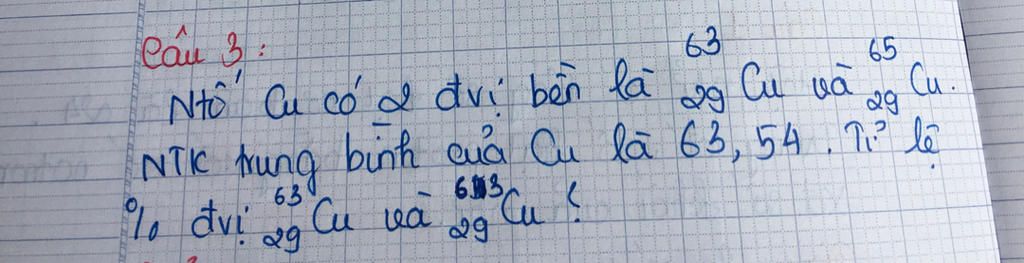 Câu 3:
Ntố Cu có 2 đvị bền là ⁶³₂₉Cu và ⁶⁵₂₉Cu.
NTK trung bình của Cu là 63,54. Tỉ lệ
% đvị ⁶³₂₉Cu và ₂₉Cu?